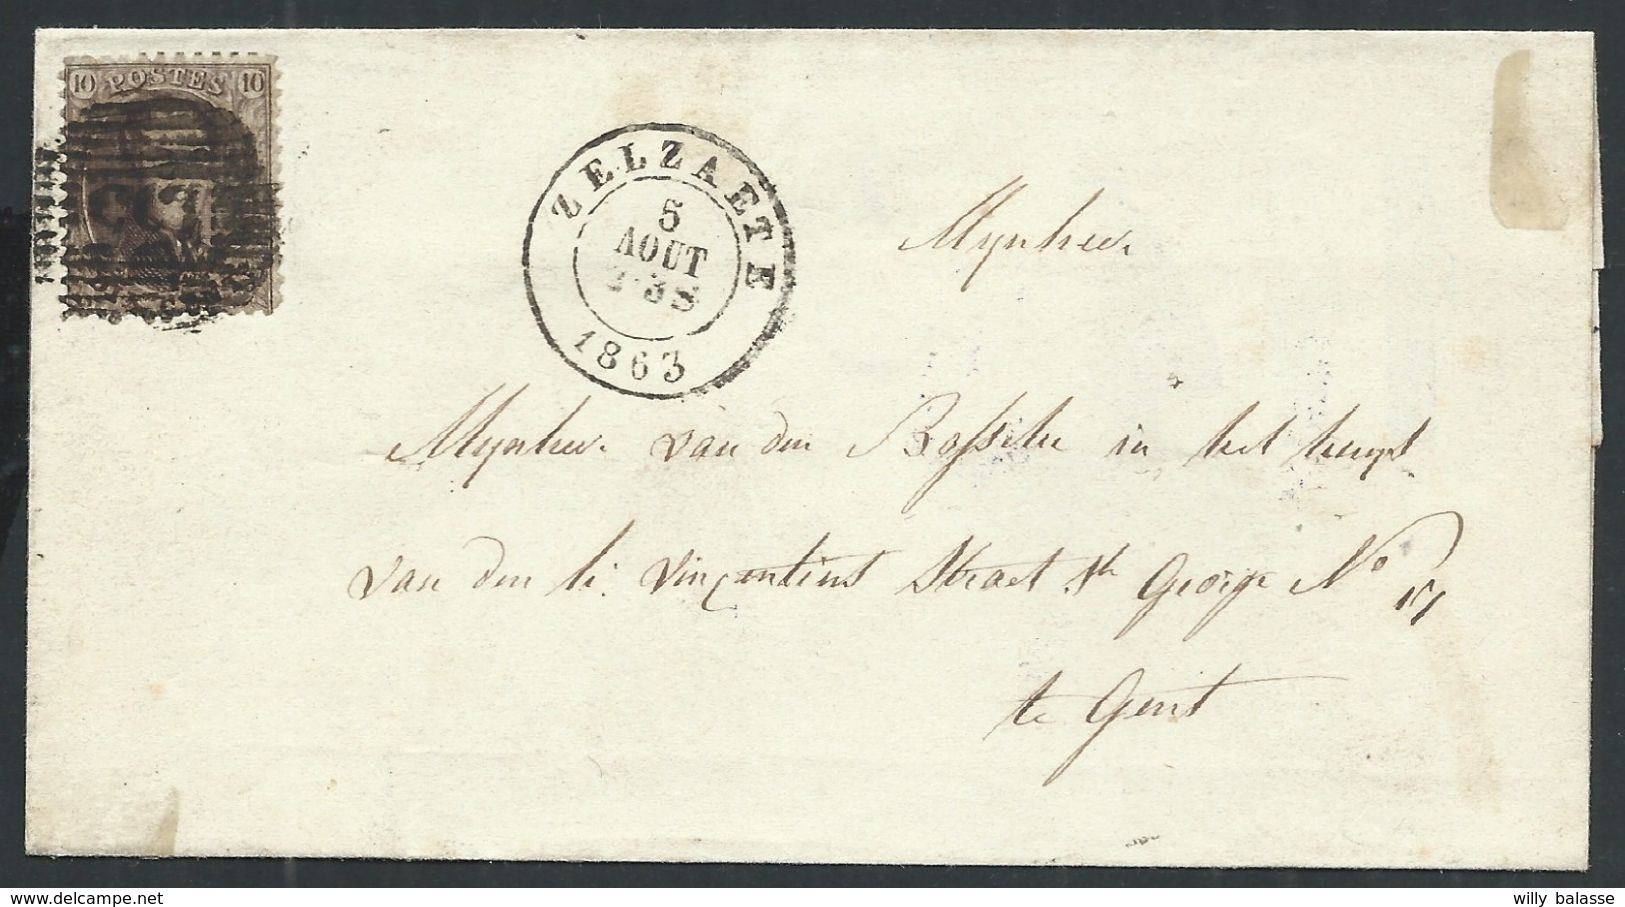 10 POSTES 10
ZELZAETE
5
AOUT
3S
1863
Mynheer
Mynheer van den Bossche in het
van den h. Vincentius Straet St George No 17
te Gent
willy balasse